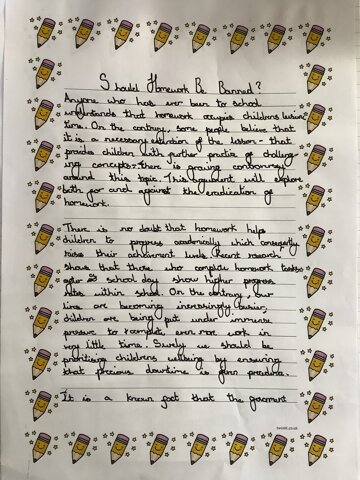 Should Homework Be Banned?
Anyone who has ever been to school
understands that homework occupies childrens leisure
time. On the contrary, some people believe that
it is a necessary extension of the lesson - that
provides children with further practice of challeng-
ing concepts. There is growing controversy
around this topic. This argument will explore
both for and against the eradication of
homework.
There is no doubt that homework helps
children to progress academically which consequently
raises their achievement levels. Recent research
shows that those who complete homework tasks
after school day show higher progress
rates within school. On the contrary, our
lives are becoming increasingly busier,
children are being put under immense
pressure to complete even more work in
very little time. Surely we should be
prioritising childrens wellbeing by ensuring
that precious downtime is given precedence.
It is a known fact that the goverment
twinkl.co.uk